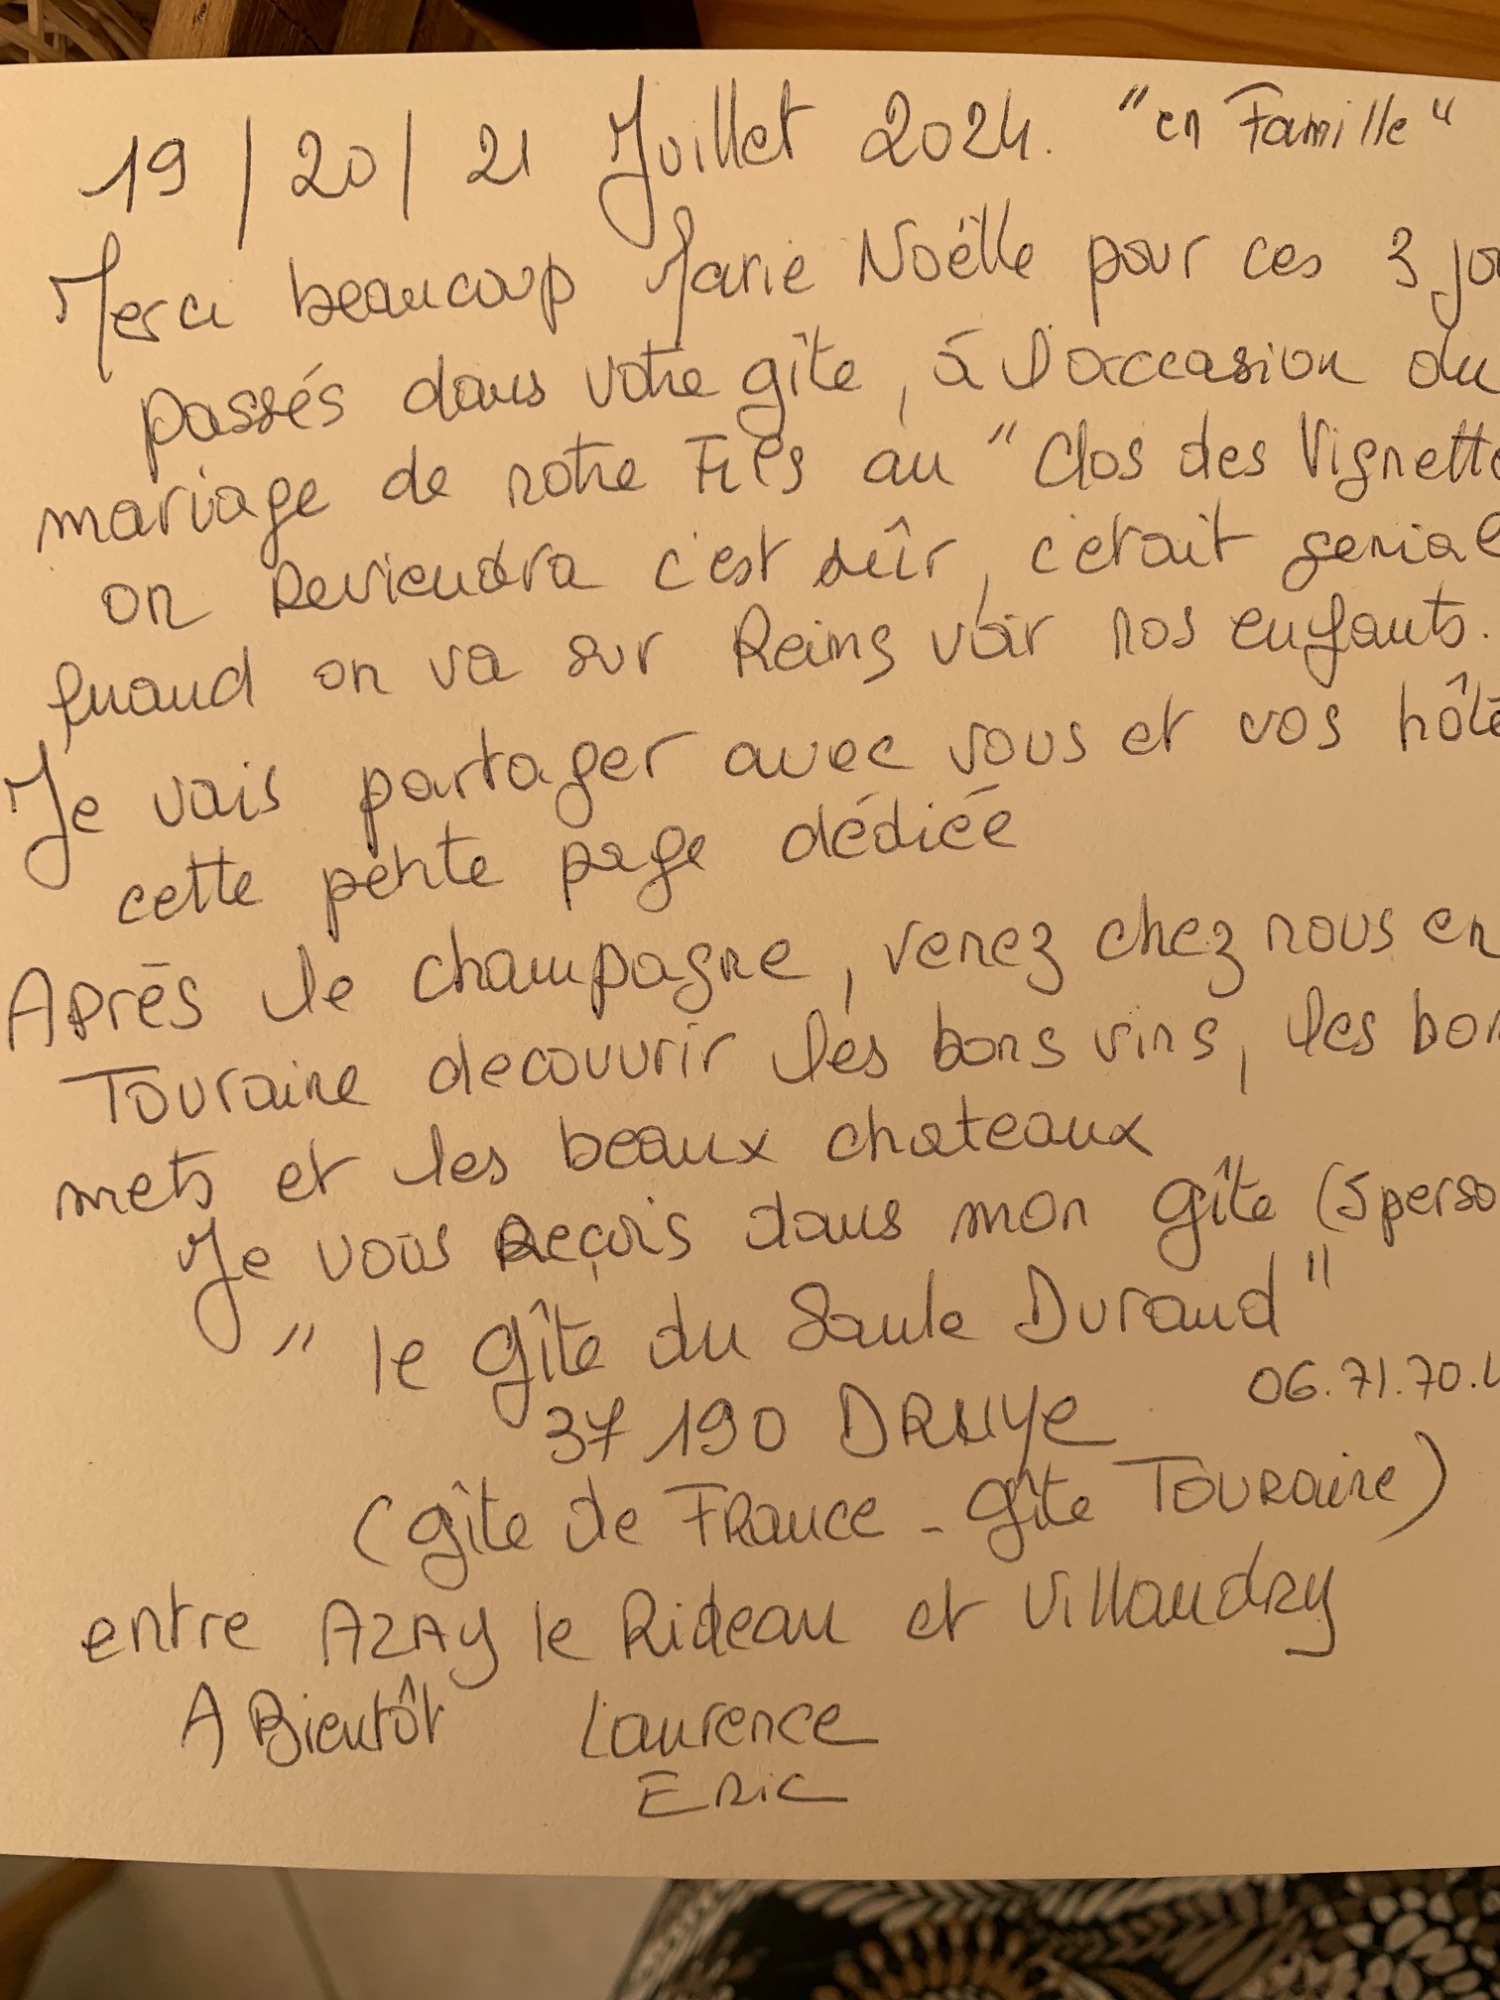 19 / 20 / 21 Juillet 2024. "en Famille"
Merci beaucoup Marie Noëlle pour ces 3 jo
passés dans votre gîte, à l'occasion du
mariage de notre Fils au "Clos des Vignette
on Reviendra c'est sûr, c'etait genial
quand on va sur Reims voir nos enfants.
Je vais partager avec vous et vos hôte
cette petite page dédicée
Après le champagne, venez chez nous en
Touraine decouvrir les bons vins, les bon
mets et les beaux chateaux
Je vous Reçois dans mon gîte (5 perso
"le gîte du Saule Durand"
06.71.70.
37190 DRUYe
(gîte de FRance - gîte TOURaine)
entre AZAY le Rideau et Villandry
A Bientôt Laurence
ERic